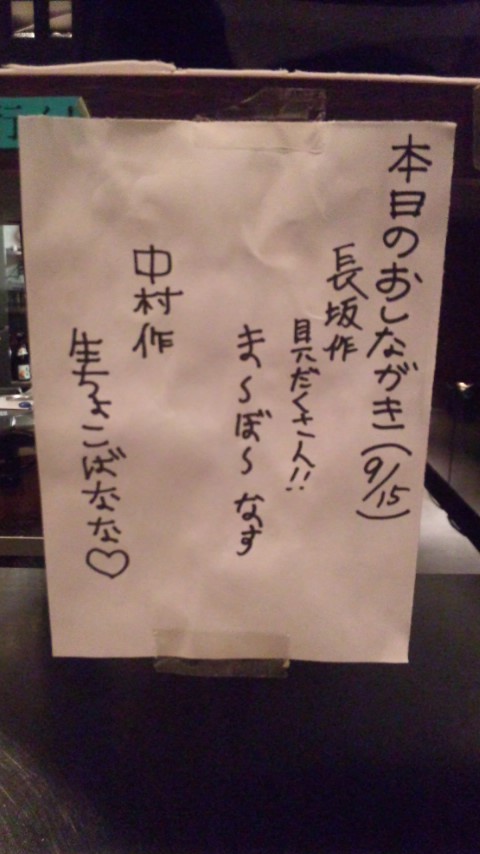 本日のおしながき(9/15)
長坂作
具だくさん!!
ま〜ぼ〜なす
中村作
生ちょこばなな♡